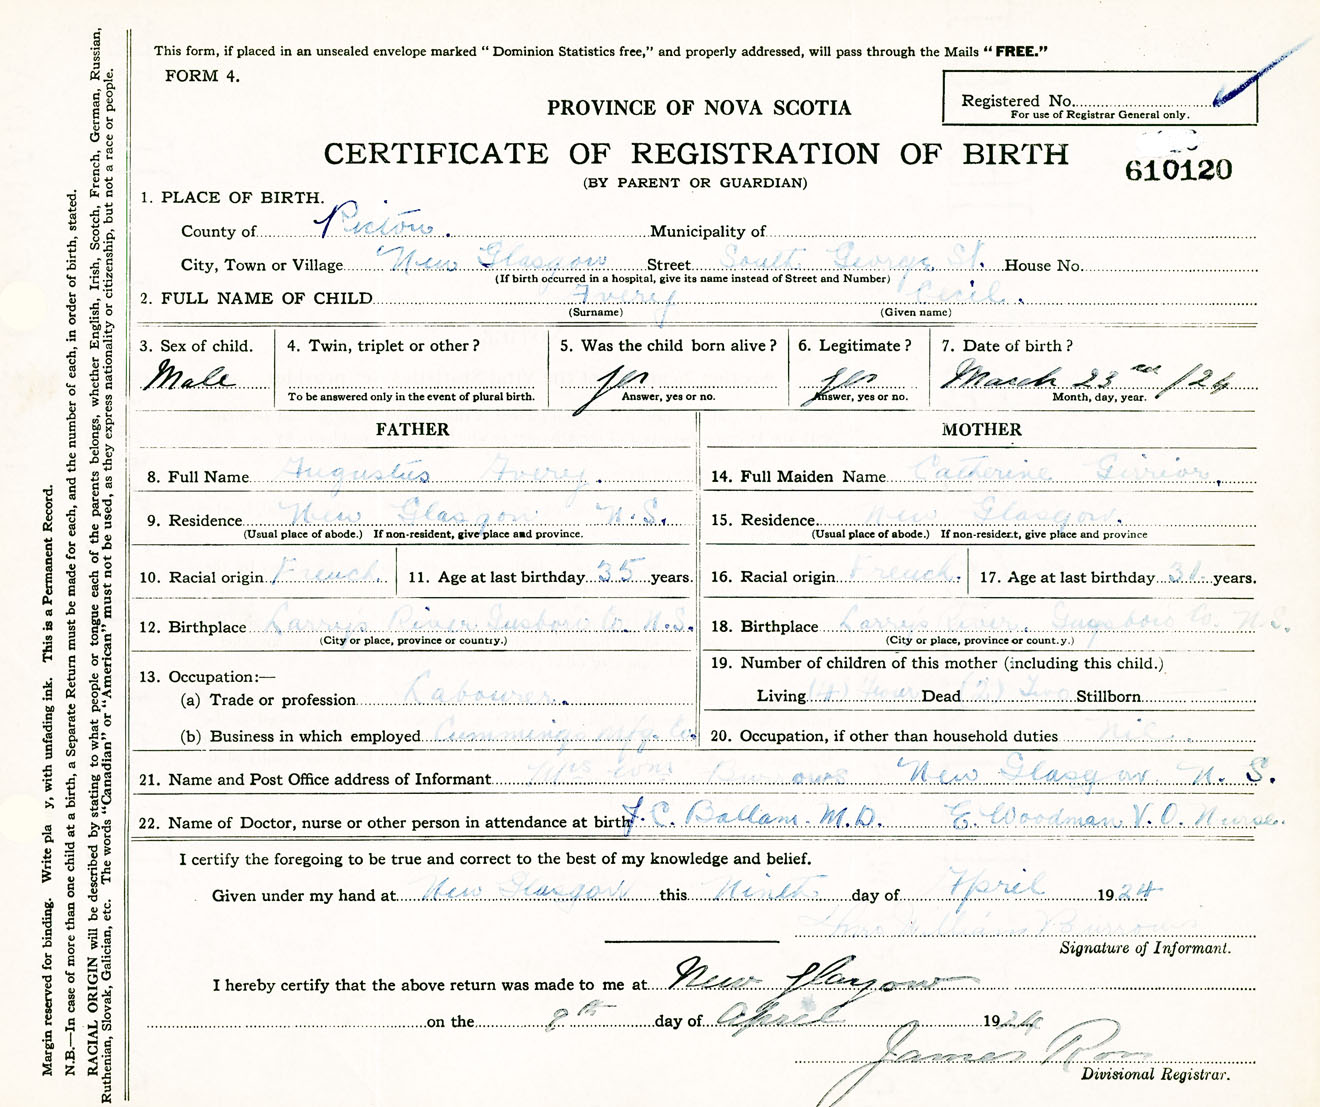 This form, if placed in an unsealed envelope marked "Dominion Statistics free," and properly addressed, will pass through the Mails "FREE."
FORM 4.
Registered No.
For use of Registrar General only.
PROVINCE OF NOVA SCOTIA
CERTIFICATE OF REGISTRATION OF BIRTH
610120
(BY PARENT OR GUARDIAN)
1. PLACE OF BIRTH.
County of Pictou. Municipality of
City, Town or Village New Glasgow Street South George St. House No.
(If birth occurred in a hospital, give its name instead of Street and Number)
2. FULL NAME OF CHILD Avery Cecil.
(Surname) (Given name)
3. Sex of child. 4. Twin, triplet or other? 5. Was the child born alive? 6. Legitimate? 7. Date of birth?
Male yes yes March 23rd /24
To be answered only in the event of plural birth. Answer, yes or no. Answer, yes or no. Month, day, year.
FATHER MOTHER
8. Full Name Augustus Avery. 14. Full Maiden Name Catherine Girrior.
9. Residence New Glasgow N.S. 15. Residence New Glasgow.
(Usual place of abode.) If non-resident, give place and province. (Usual place of abode.) If non-resident, give place and province
10. Racial origin French 11. Age at last birthday 35 years. 16. Racial origin French. 17. Age at last birthday 31 years.
12. Birthplace Larrys River Gusboro Co. N.S. 18. Birthplace Larrys River. Guysboro Co. N.S.
(City or place, province or country.) (City or place, province or country.)
13. Occupation:— 19. Number of children of this mother (including this child.)
(a) Trade or profession Labourer. Living (4) Four Dead (2) Two Stillborn
(b) Business in which employed Cummings Mfg. Co. 20. Occupation, if other than household duties Nil.
21. Name and Post Office address of Informant Mrs New Glasgow N. S.
22. Name of Doctor, nurse or other person in attendance at birth J. C. Ballam. M.D. E. Woodman V. O. Nurse.
I certify the foregoing to be true and correct to the best of my knowledge and belief.
Given under my hand at New Glasgow this Ninth day of April 1924
William Burrows
Signature of Informant.
I hereby certify that the above return was made to me at New Glasgow
on the 9th day of April 1924
James Ross
Divisional Registrar.
Margin reserved for binding. Write pla y, with unfading ink. This is a Permanent Record.
N.B.—In case of more than one child at a birth, a Separate Return must be made for each, and the number of each, in order of birth, stated.
RACIAL ORIGIN will be described by stating to what people or tongue each of the parents belongs, whether English, Irish, Scotch, French, German, Russian,
Ruthenian, Slovak, Galician, etc. The words "Canadian" or "American" must not be used, as they express nationality or citizenship, but not a race or people.